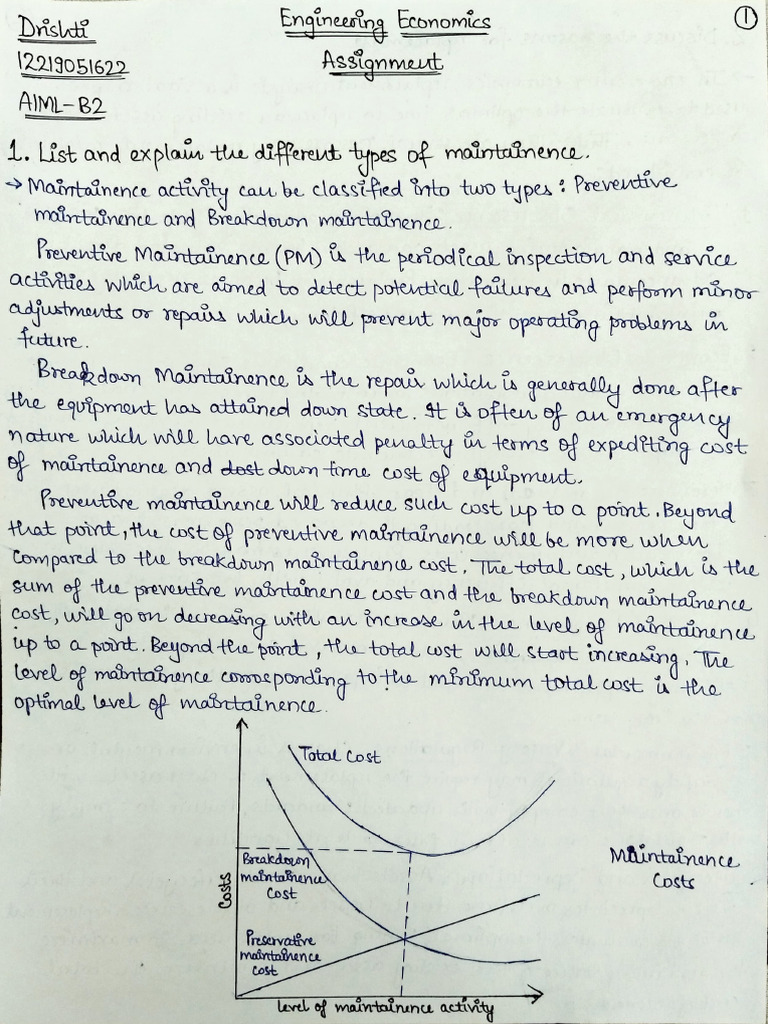 Drishti
12219051622
AIML-B2
Engineering Economics
Assignment
1
1. List and explain the different types of maintainence.
→ Maintainence activity can be classified into two types: Preventive
maintainence and Breakdown maintainence.
Preventive Maintainence (PM) is the periodical inspection and service
activities which are aimed to detect potential failures and perform minor
adjustments or repairs which will prevent major operating problems in
future.
Breakdown Maintainence is the repair which is generally done after
the equipment has attained down state. It is often of an emergency
nature which will have associated penalty in terms of expediting cost
of maintainence and dost down time cost of equipment.
Preventive maintainence will reduce such cost up to a point. Beyond
that point, the cost of preventive maintainence will be more when
compared to the breakdown maintainence cost. The total cost, which is the
sum of the preventive maintainence cost and the breakdown maintainence
cost, will go on decreasing with an increase in the level of maintainence
up to a point. Beyond the point, the total cost will start increasing. The
level of maintainence corrosponding to the minimum total cost is the
optimal level of maintainence.
Total Cost
Breakdown
maintainence
Cost
Costs
Preservative
maintainence
cost
level of maintainence activity
Maintainence
Costs